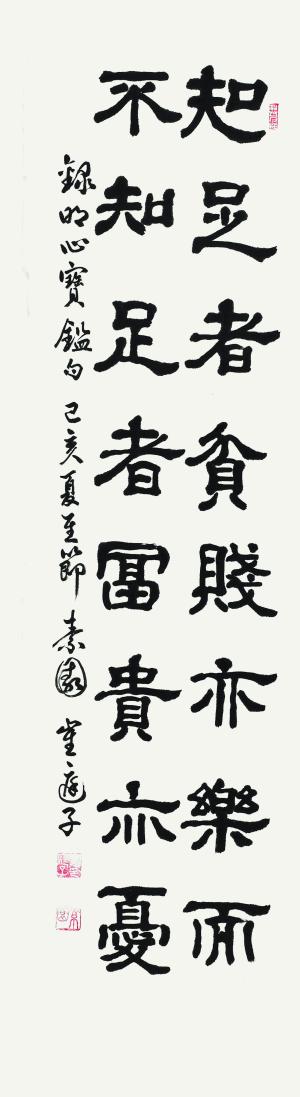 知足者貧賤亦樂而
不知足者冨貴亦憂
錄明心寶鑑句 己亥夏至節 素園 崔 子